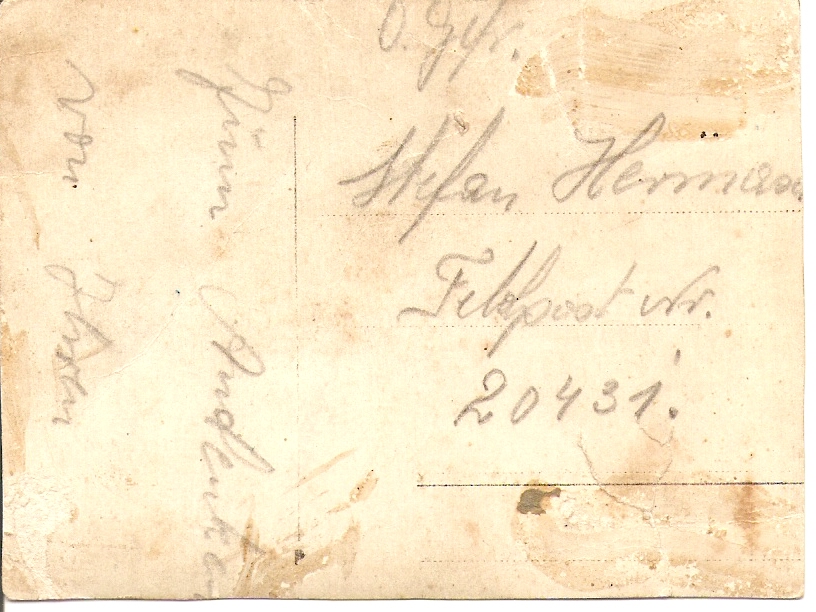 O. Gefr.
Stefan Hermann
Feldpost Nr.
20431.
Zum Andenken
von Ihrem